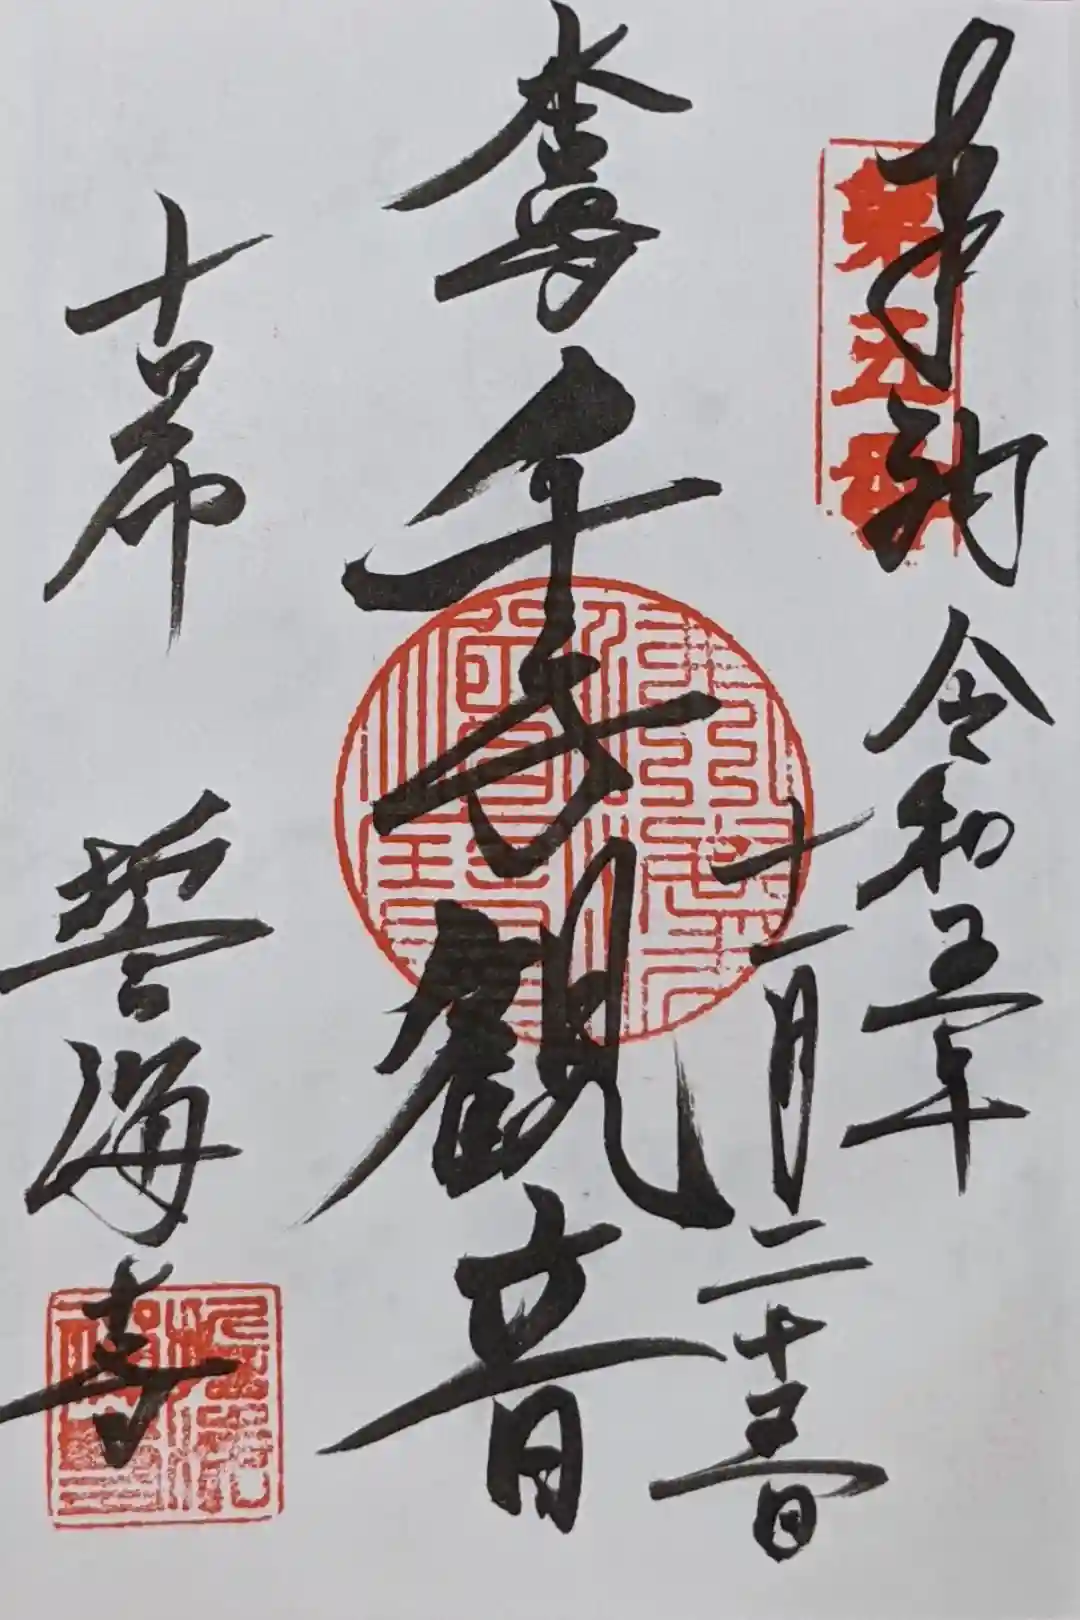 奉納 令和五年
十一月二十五日
第五番
本尊 千手観音
古布 誓海寺